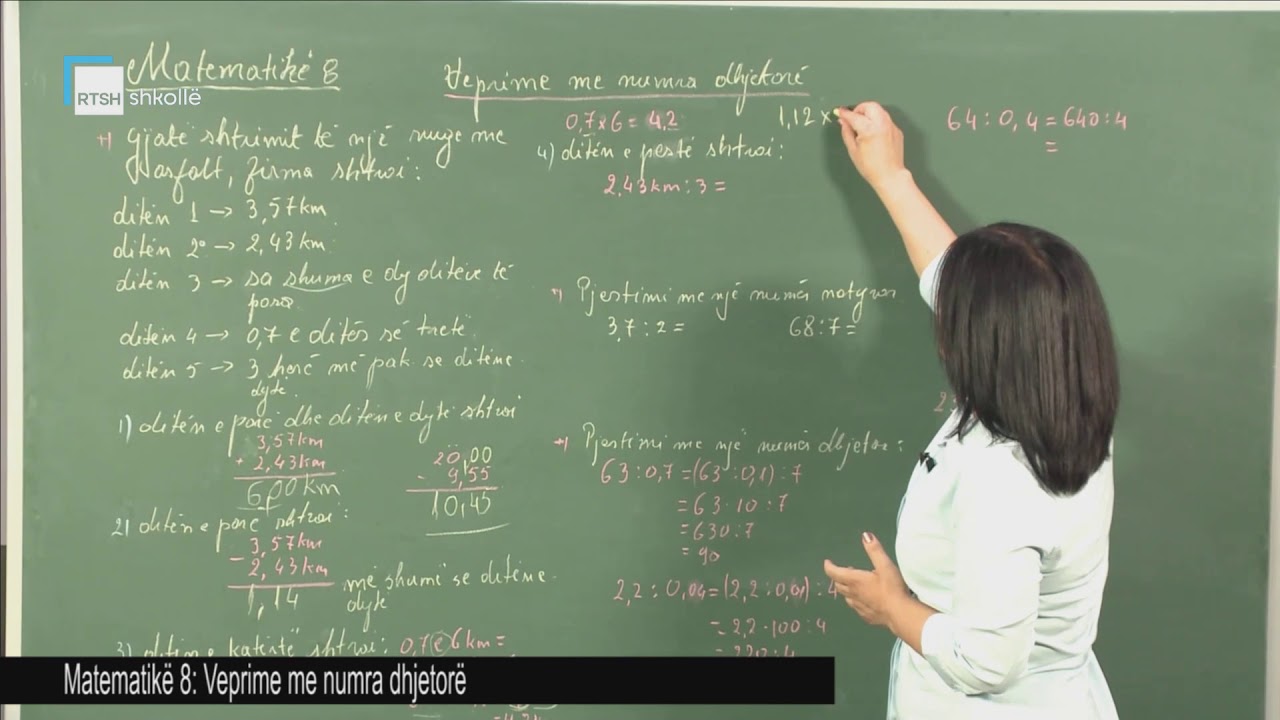 RTSH shkollë
Matematikë 8
Veprime me numra dhjetorë
Gjatë shtrimit të një rruge me
asfalt, firma shtroi:
ditën 1 → 3,57km
ditën 2 → 2,43km
ditën 3 → sa shuma e dy ditëve të
para
ditën 4 → 0,7 e ditës së tretë
ditën 5 → 3 herë më pak se ditën e
dytë
1) ditën e parë dhe ditën e dytë shtroi
3,57km
+ 2,43km
6,00km
20,00
- 9,55
10,45
2) ditën e parë shtroi:
3,57km
- 2,43km
1,14 më shumë se ditën e
dytë
3) ditën e katërt shtroi: 0,7 e 6km=
0,7x6= 4,2
4) ditën e pestë shtroi:
2,43km:3=
1,12x
64:0,4=640:4
=
Pjestimi me një numër natyror
3,7:2=
68:7=
Pjestimi me një numër dhjetor:
63:0,7=(63:0,1):7
=63·10:7
=630:7
=90
2,2:0,04=(2,2:0,01):4
=2,2·100:4
=220:4
Matematikë 8: Veprime me numra dhjetorë